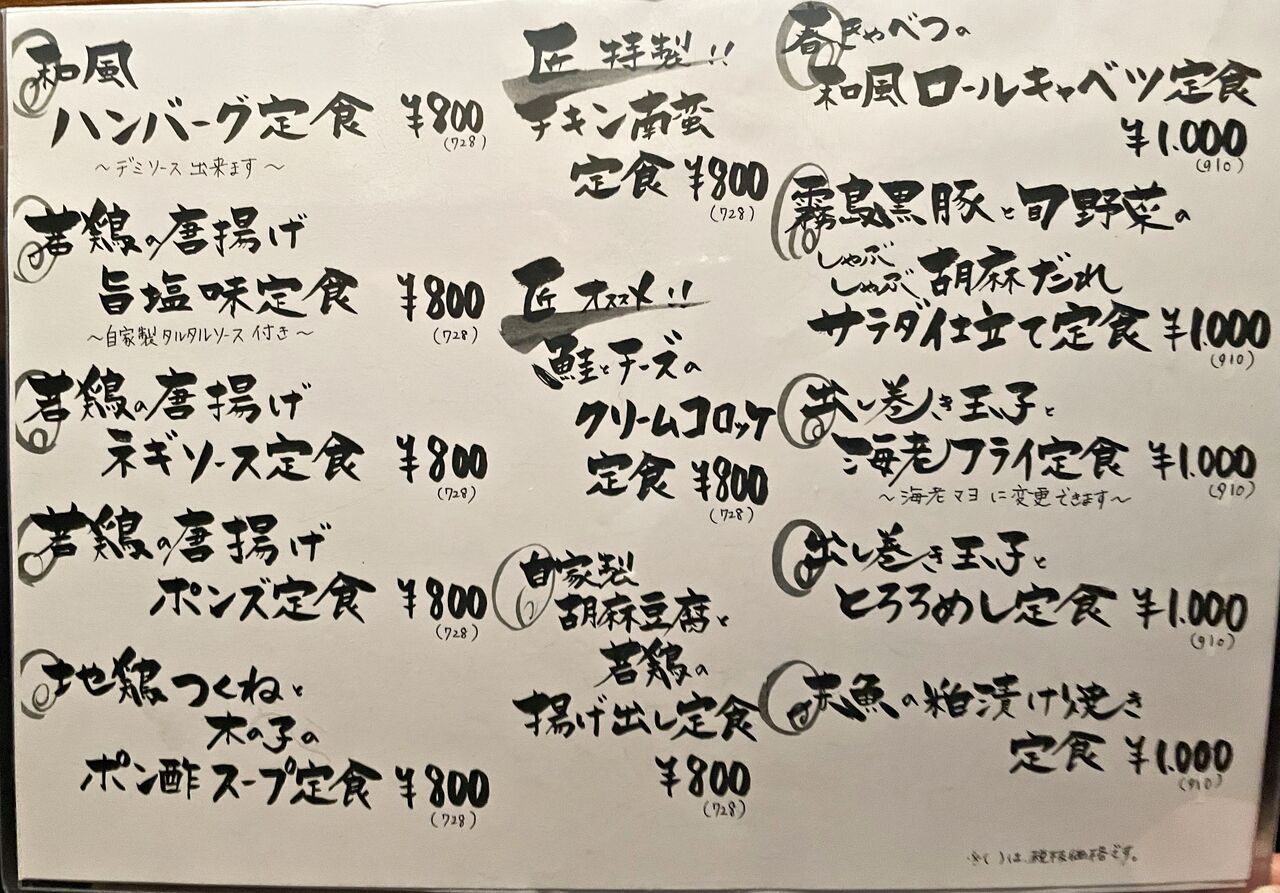 和風
ハンバーグ定食 ¥800
(728)
～デミソース出来ます～
若鶏の唐揚げ
旨塩味定食 ¥800
(728)
～自家製タルタルソース付き～
若鶏の唐揚げ
ネギソース定食 ¥800
(728)
若鶏の唐揚げ
ポンズ定食 ¥800
(728)
地鶏つくねと
木の子の
ポン酢スープ定食 ¥800
(728)
匠 特製!!
チキン南蛮
定食 ¥800
(728)
匠 オススメ!!
鮭とチーズの
クリームコロッケ
定食 ¥800
(728)
自家製
胡麻豆腐と
若鶏の
揚げ出し定食
¥800
(728)
春きゃべつの
和風ロールキャベツ定食
¥1.000
(910)
霧島黒豚と旬野菜の
しゃぶ
しゃぶ 胡麻だれ
サラダ仕立て定食 ¥1.000
(910)
出し巻き玉子と
海老フライ定食 ¥1.000
(910)
～海老マヨに変更できます～
出し巻き玉子と
とろろめし定食 ¥1.000
(910)
赤魚の粕漬け焼き
定食 ¥1.000
(910)
※( )は、税抜価格です。